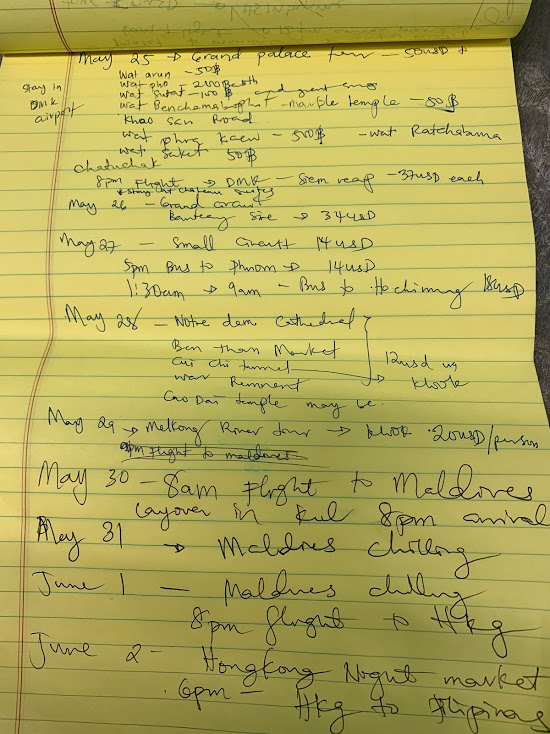 May 25 → Grand palace tour - 50USD
Wat arun - 50฿
Wat pho - 200฿
Wat Sutat - 100฿
Wat Benchamabophit - Marble temple - 50฿
Khao San Road
Wat phra kaew - 500฿ - Wat Ratchaburna
Wat Saket 50฿
Stay in
DMK
airport
Chatuchak
8pm Flight → DMK - Siem reap - 37USD each
* Stay at Chateau
May 26 - Grand circuit
Banteay Sire → 34USD
May 27 - Small Circuit 14USD
5pm Bus to Phnom → 14USD
1:30am → 9am - Bus to Hochiming 18USD
May 28 - Notre dam Cathedral
Ben Than Market
Cui Chi tunnel
War Remnent
Cao Dai temple may be
12usd
klook
May 29 → Melkong River tour → klook 20USD/person
9pm Flight to maldives
May 30 - 8am Flight to Maldives
Layover in Kul 8pm arrival
May 31 → Maldives chilling
June 1 - Maldives chilling
8pm flight to Hkg
June 2 - Hongkong Night market
6pm - Hkg to Filipinas